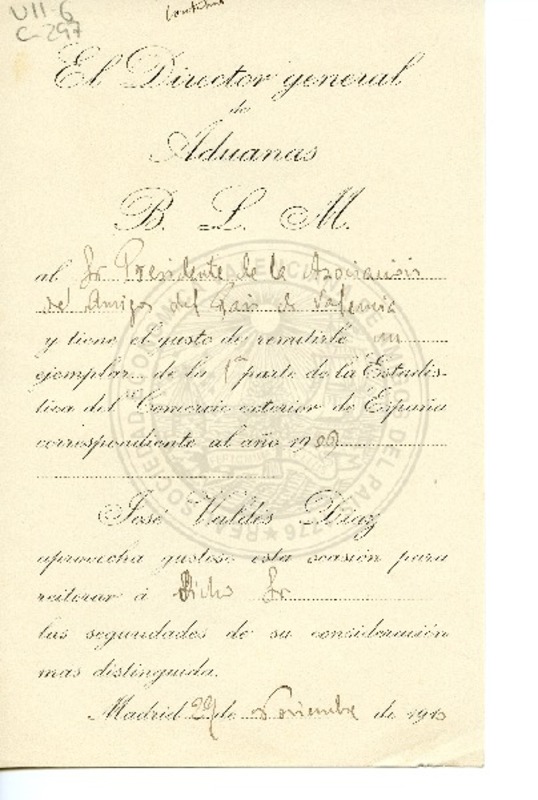 VII-6
C-297
El Director general
de
Aduanas
B. L. M.
al Sr Presidente de la Asociacion
de Amigos del Pais de Valencia
y tiene el gusto de remitirle un
ejemplar de la 1ª parte de la Estadís-
tica del Comercio exterior de España
correspondiente al año 1909
José Valdés Díaz
aprovecha gustoso esta ocasión para
reiterar á Dicho Sr
las seguridades de su consideración
mas distinguida.
Madrid 29 de Noviembre de 1910